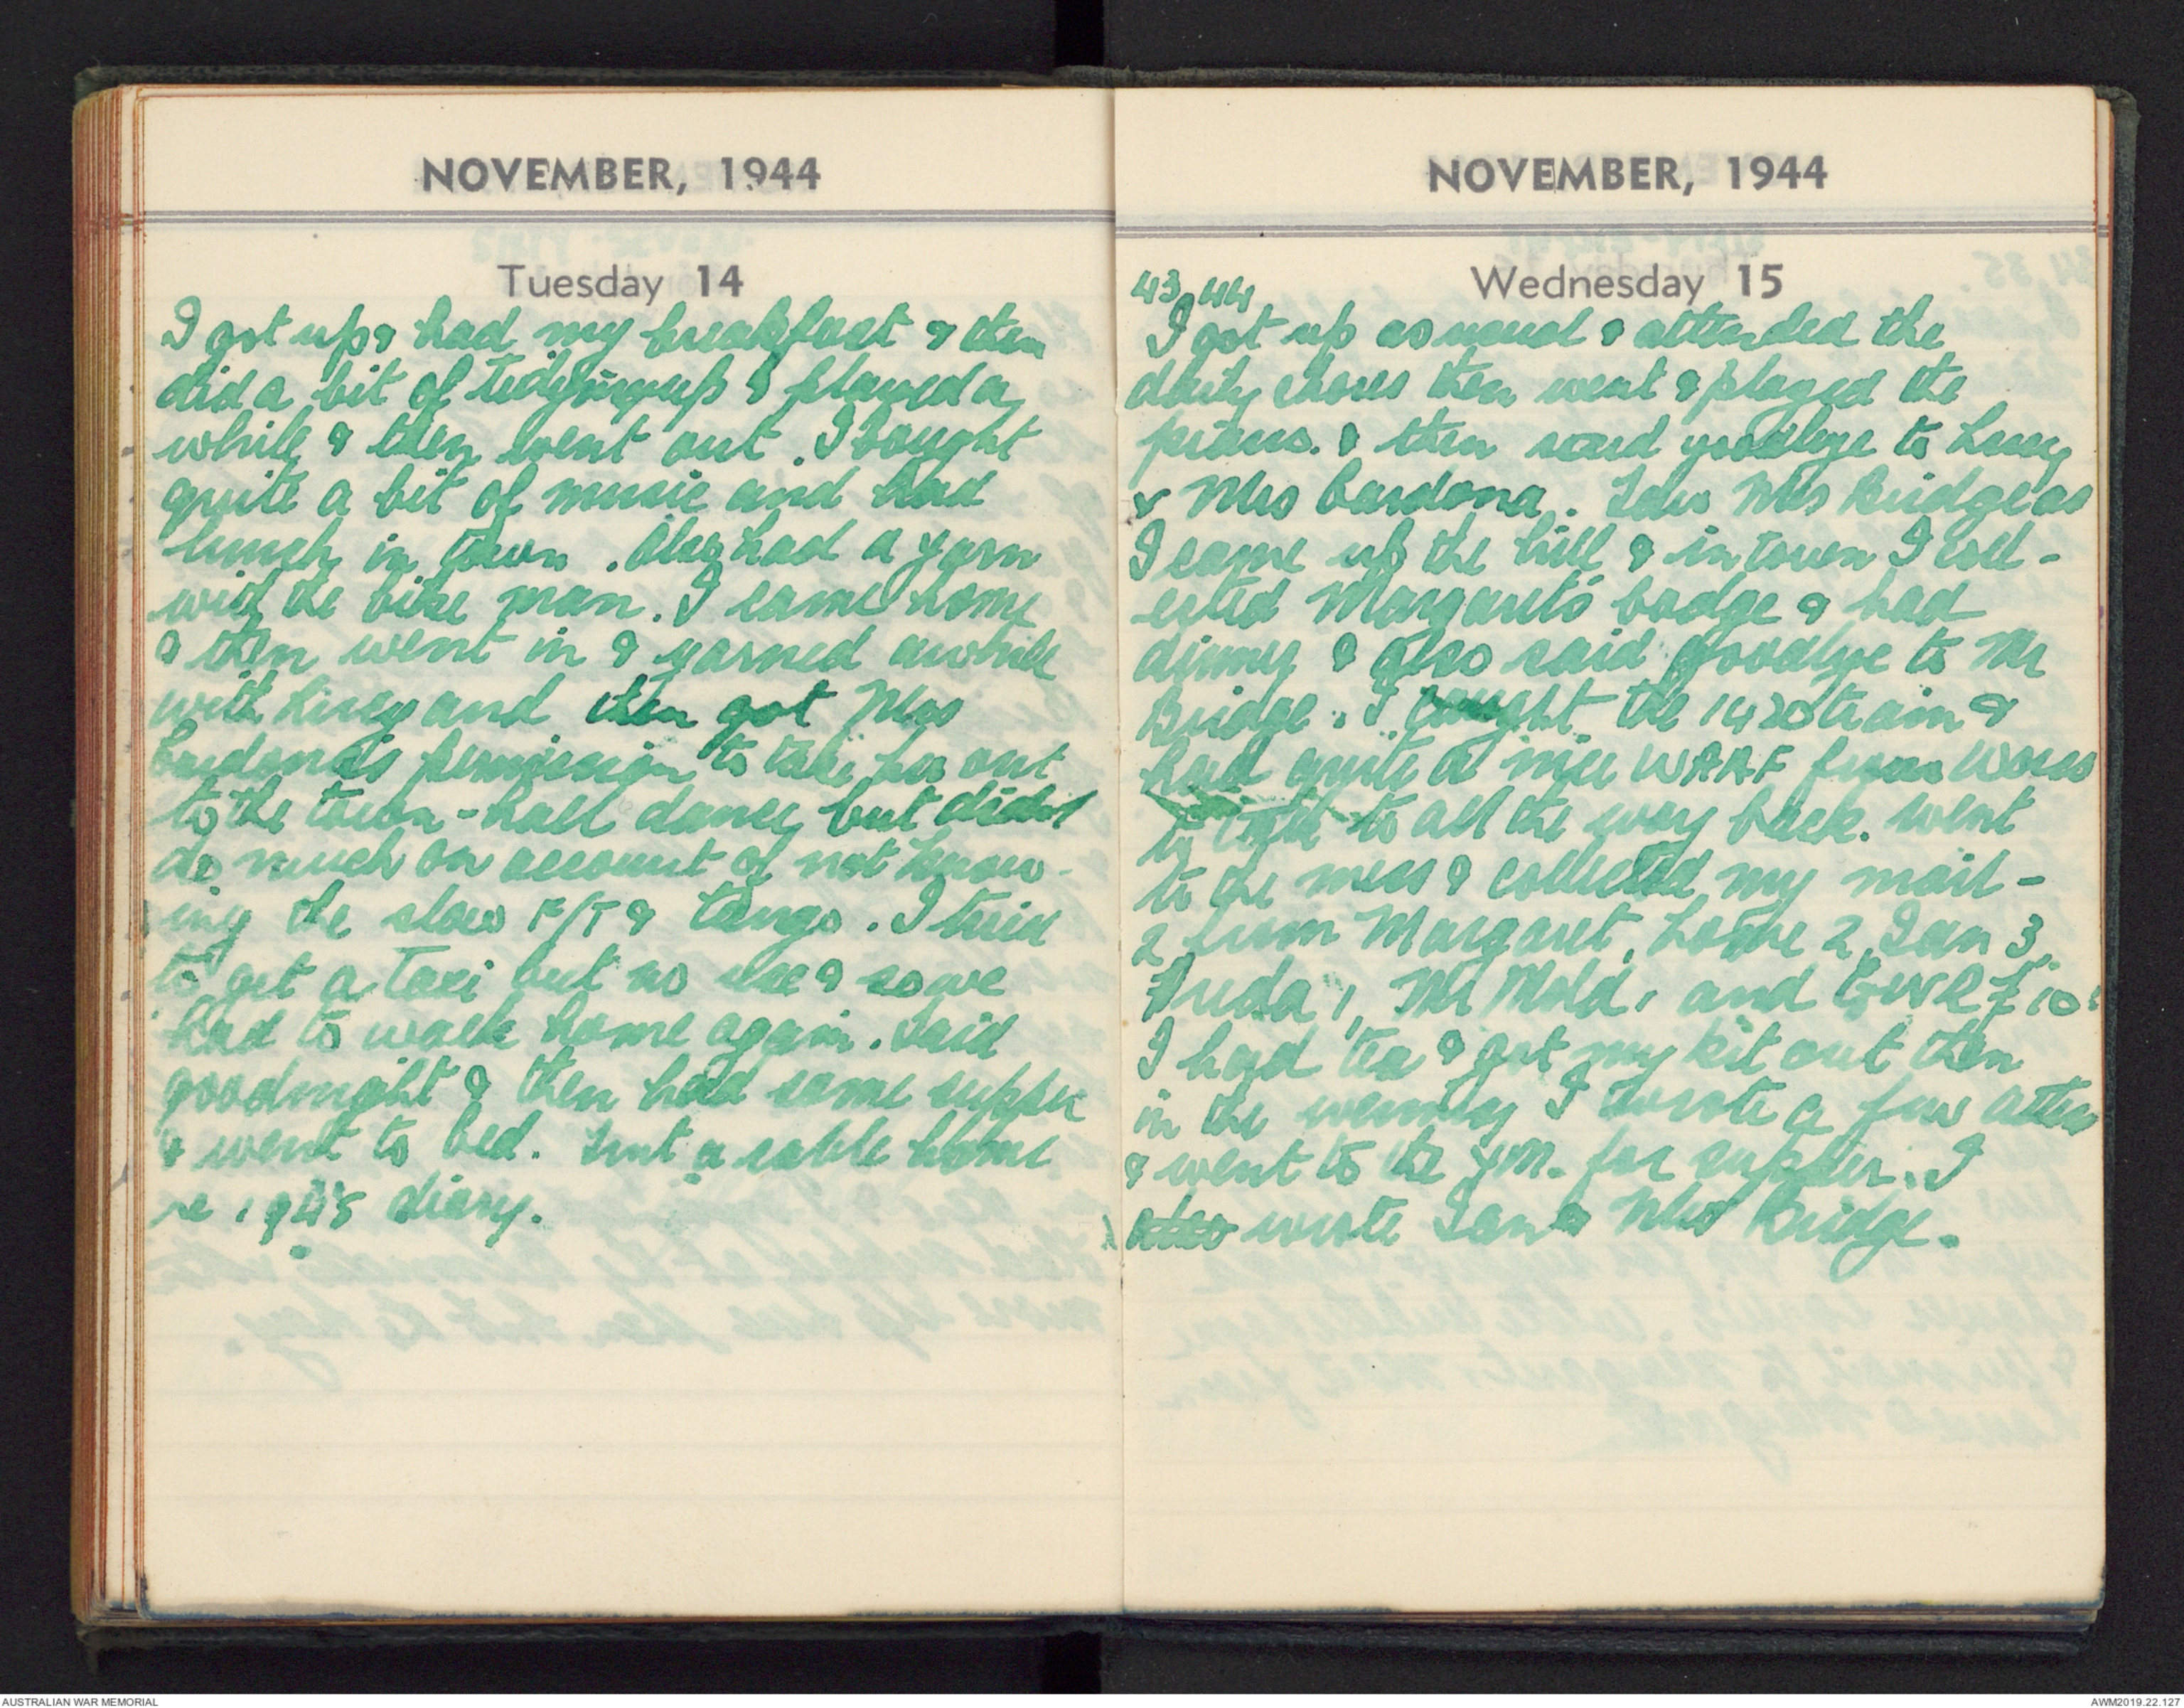 NOVEMBER, 1944
Tuesday 14
I got up & had my breakfast & then
did a bit of tidying up & played a
while & then went out. I bought
quite a bit of music and had
lunch in town. Also had a yarn
with the bike man. I came home
& then went in & yarned awhile
with Lucy and then got Mrs
Cardona's permission to take her out
to the town-hall dance but didnt
do much on account of not know-
ing the slow F/T & tango. I tried
to get a taxi but no use & so we
had to walk home again. Said
goodnight & then had some supper
& went to bed. Sent a cable home
re 1945 diary.
NOVEMBER, 1944
Wednesday 15
43, 44
I got up as usual & attended the
daily chores then went & played the
piano. & then said goodbye to Lucy
& Mrs Cardona. Saw Mrs Bridge as
I came up the hill & in town I coll-
ected Margaret's badge & had
dinner & also said goodbye to Mr
Bridge. I caught the 1420 train &
had quite a nice WAAF from
to talk to all the way back. Went
to the mess & collected my mail -
2 from Margaret, home 2, Ian 3,
1, Mr Mold, and
I had tea & got my kit out then
in the evening I wrote a few
& went to the YM. for supper. I
also wrote Ian & Mrs Bridge.
AUSTRALIAN WAR MEMORIAL
AWM2019.22.127